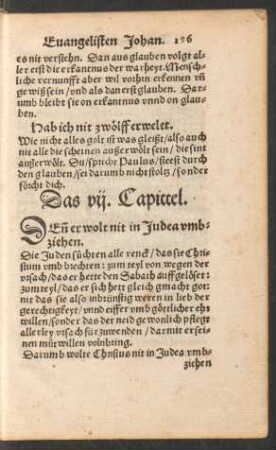 Euangelisten Johan. 176
es nit verstehn. Dan aus glauben volgt al-
ler erst die erkantnus der warheyt. Mensch-
liche vernunfft aber wil vorhin erkennen vñ
gewiß sein/vnd als dan erst glauben. Dar-
umb bleibt sie on erkantnus vnnd on glau-
ben.
Hab ich nit zwölff erwelet.
Wie nicht alles golt ist was gleißt/also auch
nit alle die scheinen außerwölt sein/die sint
außerwölt. Du/spricht Paulus/steest durch
den glauben/sei darumb nicht stoltz/sonder
förcht dich.
Das vij. Capittel.
DEñ er wolt nit in Judea vmb-
ziehen.
Die Juden süchten alle renck/das sie Chri-
stum vmb brechten: zum teyl von wegen der
vrsach/das er hette den Sabath auffgelöset:
zum teyl/das er sich hett gleich gmacht got:
nit das sie also inbrünstig weren in lieb der
gerechtigkeyt/vnnd eiffer vmb göttlicher ehr
willen/sonder das der neid gewonlich pflegt
allerley vrsach für zuwenden/darmit er sei-
nen mütwillen volnbring.
Darumb wolte Christus nit in Judea vmb-
ziehen